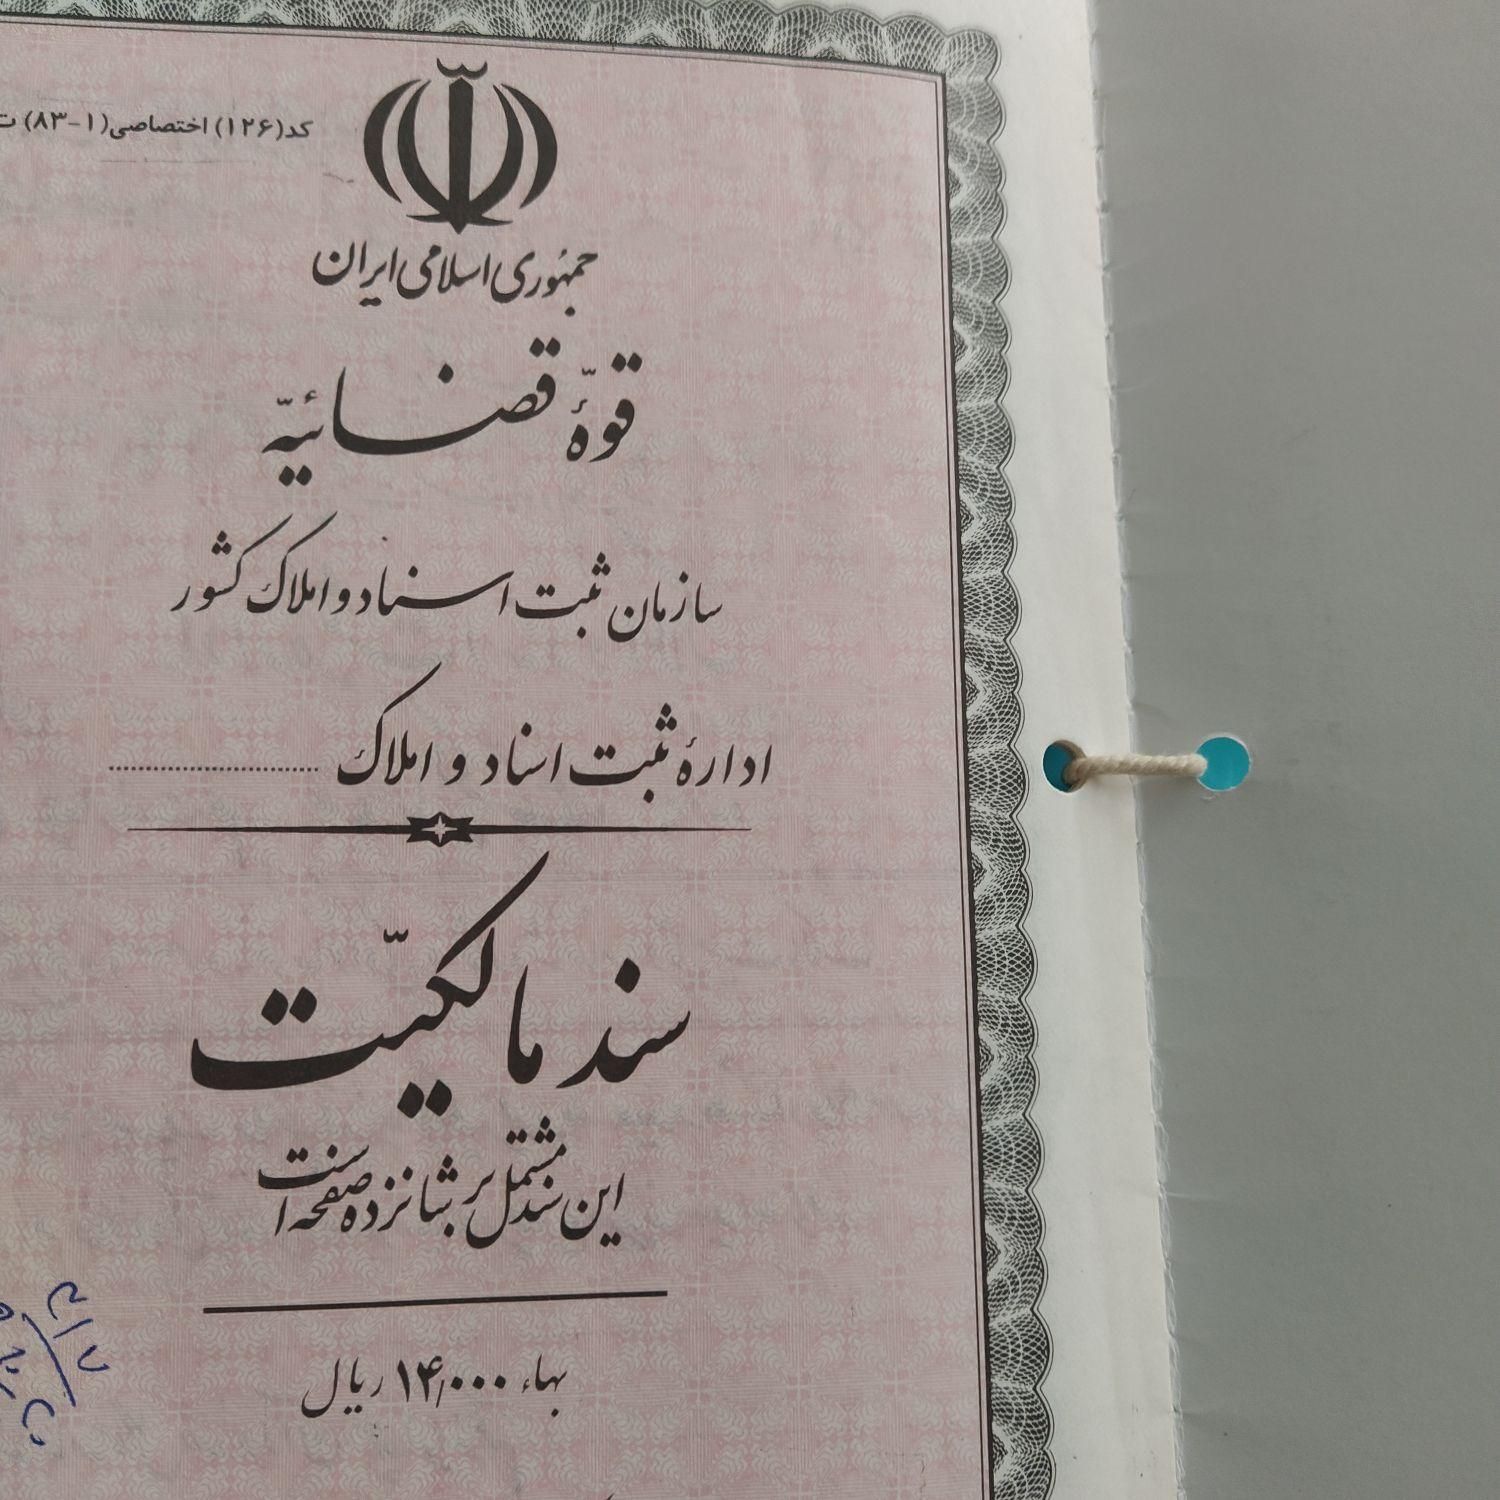 کد(۱۲۶) اختصاصی(۱-۸۳) ت
جمهوری اسلامی ایران
قوّهٔ قضائیّه
سازمان ثبت اسناد و املاک کشور
ادارهٔ ثبت اسناد و املاک ........................
سند مالکیّت
این سند مشتمل بر شانزده صفحه است
بهاء ۱۴/۰۰۰ ریال